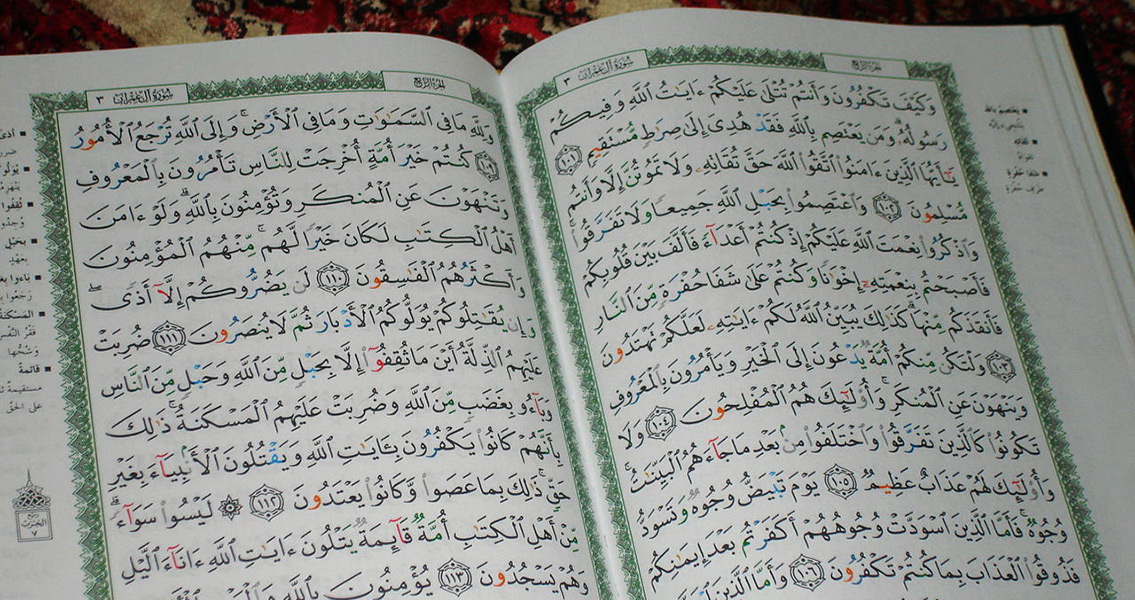 الجزء الرابع
سورة آل عمران ٣
وَكَيْفَ تَكْفُرُونَ وَأَنتُمْ تُتْلَىٰ عَلَيْكُمْ ءَايَٰتُ ٱللَّهِ وَفِيكُمْ
رَسُولُهُۥ وَمَن يَعْتَصِم بِٱللَّهِ فَقَدْ هُدِىَ إِلَىٰ صِرَٰطٍ مُّسْتَقِيمٍ ١٠١
يَٰٓأَيُّهَا ٱلَّذِينَ ءَامَنُوا۟ ٱتَّقُوا۟ ٱللَّهَ حَقَّ تُقَاتِهِۦ وَلَا تَمُوتُنَّ إِلَّا وَأَنتُم
مُّسْلِمُونَ ١٠٢ وَٱعْتَصِمُوا۟ بِحَبْلِ ٱللَّهِ جَمِيعًا وَلَا تَفَرَّقُوا۟
وَٱذْكُرُوا۟ نِعْمَتَ ٱللَّهِ عَلَيْكُمْ إِذْ كُنتُمْ أَعْدَآءً فَأَلَّفَ بَيْنَ قُلُوبِكُمْ
فَأَصْبَحْتُم بِنِعْمَتِهِۦٓ إِخْوَٰنًا وَكُنتُمْ عَلَىٰ شَفَا حُفْرَةٍ مِّنَ ٱلنَّارِ
فَأَنقَذَكُم مِّنْهَا كَذَٰلِكَ يُبَيِّنُ ٱللَّهُ لَكُمْ ءَايَٰتِهِۦ لَعَلَّكُمْ تَهْتَدُونَ
١٠٣ وَلْتَكُن مِّنكُمْ أُمَّةٌ يَدْعُونَ إِلَى ٱلْخَيْرِ وَيَأْمُرُونَ بِٱلْمَعْرُوفِ
وَيَنْهَوْنَ عَنِ ٱلْمُنكَرِ وَأُو۟لَٰٓئِكَ هُمُ ٱلْمُفْلِحُونَ ١٠٤ وَلَا
تَكُونُوا۟ كَٱلَّذِينَ تَفَرَّقُوا۟ وَٱخْتَلَفُوا۟ مِنۢ بَعْدِ مَا جَآءَهُمُ ٱلْبَيِّنَٰتُ
وَأُو۟لَٰٓئِكَ لَهُمْ عَذَابٌ عَظِيمٌ ١٠٥ يَوْمَ تَبْيَضُّ وُجُوهٌ وَتَسْوَدُّ
وُجُوهٌ فَأَمَّا ٱلَّذِينَ ٱسْوَدَّتْ وُجُوهُهُمْ أَكَفَرْتُم بَعْدَ إِيمَٰنِكُمْ
فَذُوقُوا۟ ٱلْعَذَابَ بِمَا كُنتُمْ تَكْفُرُونَ ١٠٦ وَأَمَّا ٱلَّذِينَ
يعتصم بالله
تقاته
شفا حفرة
طرف حفرة
الجزء الرابع
سورة آل عمران ٣
وَلِلَّهِ مَا فِى ٱلسَّمَٰوَٰتِ وَمَا فِى ٱلْأَرْضِ وَإِلَى ٱللَّهِ تُرْجَعُ ٱلْأُمُورُ
١٠٩ كُنتُمْ خَيْرَ أُمَّةٍ أُخْرِجَتْ لِلنَّاسِ تَأْمُرُونَ بِٱلْمَعْرُوفِ
وَتَنْهَوْنَ عَنِ ٱلْمُنكَرِ وَتُؤْمِنُونَ بِٱللَّهِ وَلَوْ ءَامَنَ
أَهْلُ ٱلْكِتَٰبِ لَكَانَ خَيْرًا لَّهُم مِّنْهُمُ ٱلْمُؤْمِنُونَ
وَأَكْثَرُهُمُ ٱلْفَٰسِقُونَ ١١٠ لَن يَضُرُّوكُمْ إِلَّآ أَذًى
وَإِن يُقَٰتِلُوكُمْ يُوَلُّوكُمُ ٱلْأَدْبَارَ ثُمَّ لَا يُنصَرُونَ ١١١ ضُرِبَتْ
عَلَيْهِمُ ٱلذِّلَّةُ أَيْنَ مَا ثُقِفُوٓا۟ إِلَّا بِحَبْلٍ مِّنَ ٱللَّهِ وَحَبْلٍ مِّنَ ٱلنَّاسِ
وَبَآءُو بِغَضَبٍ مِّنَ ٱللَّهِ وَضُرِبَتْ عَلَيْهِمُ ٱلْمَسْكَنَةُ ذَٰلِكَ
بِأَنَّهُمْ كَانُوا۟ يَكْفُرُونَ بِـَٔايَٰتِ ٱللَّهِ وَيَقْتُلُونَ ٱلْأَنۢبِيَآءَ بِغَيْرِ
حَقٍّ ذَٰلِكَ بِمَا عَصَوا۟ وَّكَانُوا۟ يَعْتَدُونَ ١١٢ ۞ لَيْسُوا۟ سَوَآءً
مِّنْ أَهْلِ ٱلْكِتَٰبِ أُمَّةٌ قَآئِمَةٌ يَتْلُونَ ءَايَٰتِ ٱللَّهِ ءَانَآءَ ٱلَّيْلِ
وَهُمْ يَسْجُدُونَ ١١٣ يُؤْمِنُونَ بِٱللَّهِ وَٱلْيَوْمِ
ثقفوا
وجدوا
بحبل
بعهد
باءوا بغ
رجعوا
المسكنة
فقر النفس
وشحها
قائمة
مستقيمة
على الحق
ربع
الحزب
٧